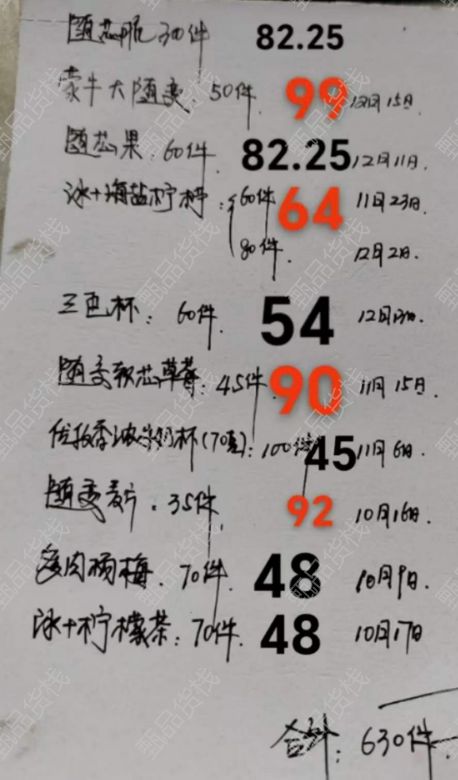 随芯脆 30件 82.25
蒙牛大随变 50件 99 12月15日
随芯果：60件 82.25 12月11日
冰+海盐柠檬：60件 64 11月23日
80件 12月2日
三色杯：60件 54 12月
随变软芯草莓：45件 90 11月15日
优牧香浓牛奶杯(70克)：100件 45 11月6日
随变麦片．35件 92 10月16日
肉杨梅．70件 48 10月9日
冰+柠檬茶：70件 48 10月17日
合计：630件
甄品货栈